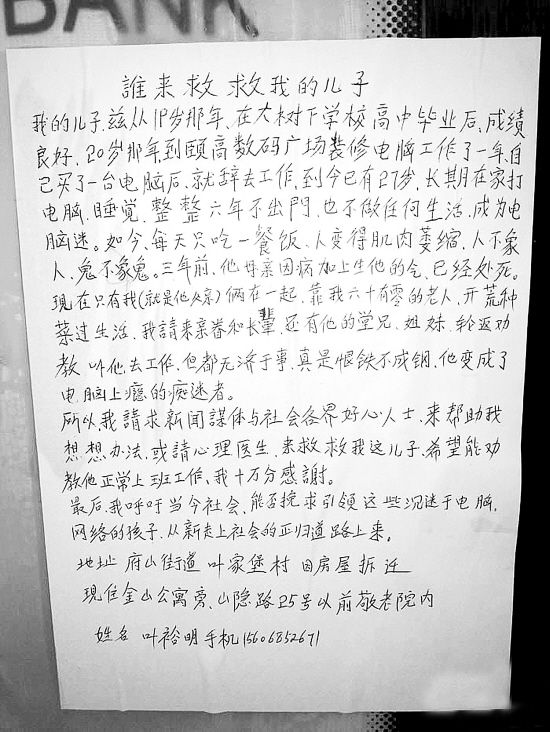 BANK
誰来救救我的儿子
我的儿子,兹从19岁那年、在大树下学校高中毕业后、成绩
良好、20岁那年到颐高数码广场装修电脑工作了一年、自
己买了一台电脑后、就辞去工作、到今已有27岁、长期在家打
电脑、睡觉、整整六年不出門、也不做任何生活、成为电
脑迷。如今、每天只吃一餐饭、人变得肌肉萎缩、人不象
人、鬼不象鬼。三年前、他母亲因病加上生他的气、已经处死。
现在只有我(就是他父亲)俩在一起、靠我六十有零的老人、开荒种
菜过生活、我請来亲眷和长輩、还有他的学兄、姐妹、轮返劝
教 叫他去工作、但都无济于事、真是恨铁不成钢、他变成了
电脑上瘾的痴迷者。
所以我請求新闻謀体与社会各界好心人士、来帮助我
想想办法、或請心理医生、来救救我这儿子、希望能劝
教他正常上班工作、我十万分感謝。
最后、我呼吁当今社会、能否挽求引领这些沉迷于电脑、
网络的孩子、从新走上社会的正归道路上来。
地址 府山街道 叶家堡村 因房屋拆迁
现住金山公寓旁、山隐路25号以前敬老院内
姓名 叶裕明手机15606852671